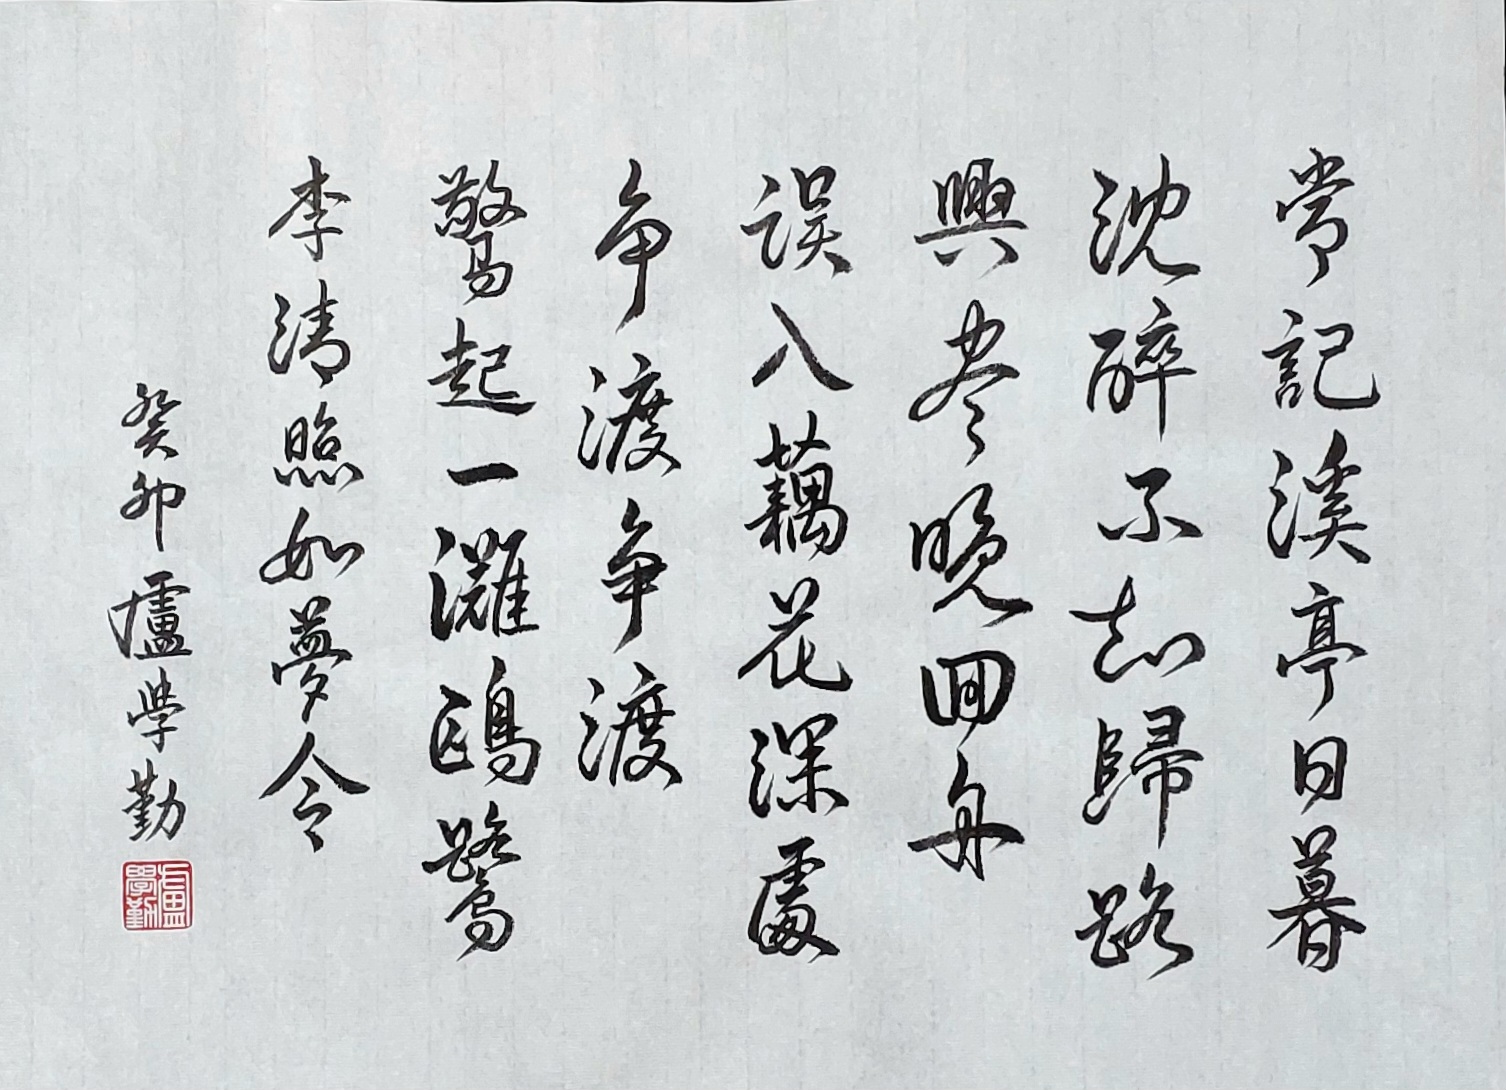 常記溪亭日暮
沈醉不知歸路
興尽晚回舟
误入藕花深處
争渡争渡
驚起一灘鷗鷺
李清照如夢令
癸卯盧学勤
盧學勤